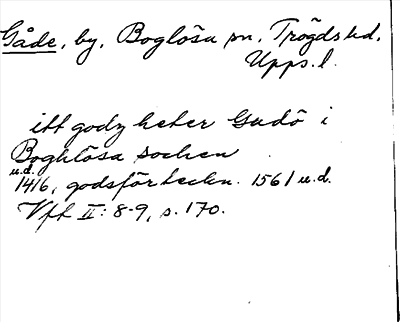 Gåde, by, Boglösa sn, Trögds hd.
Upps. l.
itt godz heter Gudö i
Boghlösa sochen
u.d.
1416, godsförteckn. 1561 u.d.
Vfl II: 8-9, s. 170.